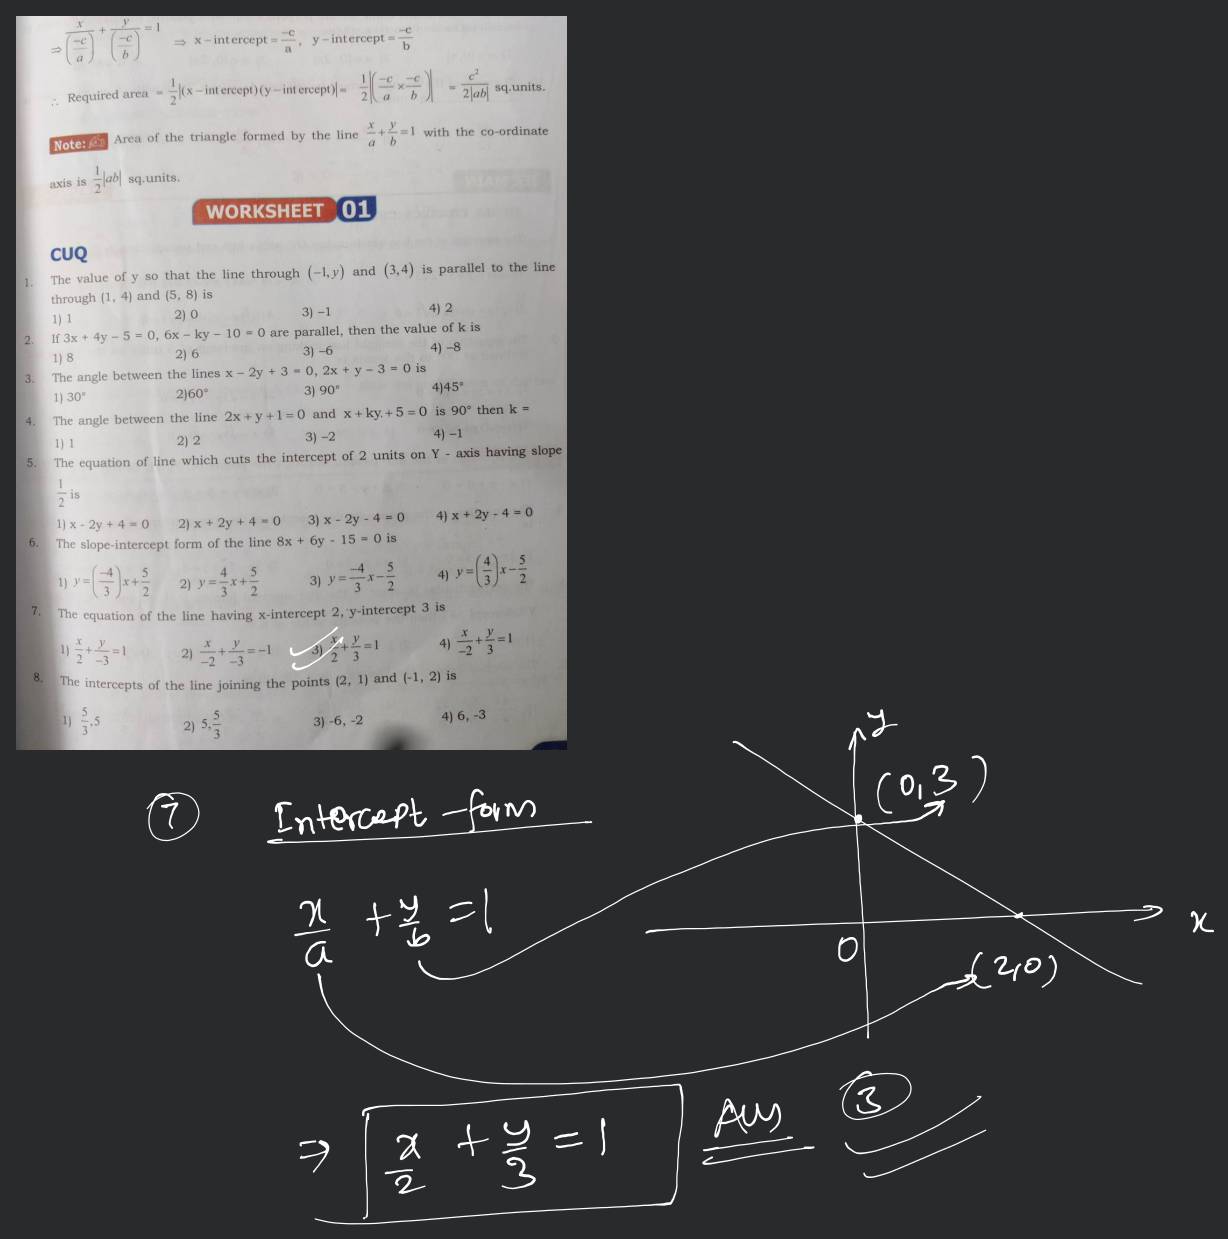 ⇒ x/(-c/a) + y/(-c/b) = 1 ⇒ x-intercept = -c/a, y-intercept = -c/b
∴ Required area = 1/2|(x-intercept)(y-intercept)| = 1/2|(-c/a × -c/b)| = c²/2|ab| sq.units.
Note: Area of the triangle formed by the line x/a + y/b = 1 with the co-ordinate
axis is 1/2|ab| sq.units.
WORKSHEET 01
CUQ
1. The value of y so that the line through (-1,y) and (3,4) is parallel to the line
through (1, 4) and (5, 8) is
1) 1 2) 0 3) -1 4) 2
2. If 3x + 4y - 5 = 0, 6x - ky - 10 = 0 are parallel, then the value of k is
1) 8 2) 6 3) -6 4) -8
3. The angle between the lines x - 2y + 3 = 0, 2x + y - 3 = 0 is
1) 30° 2)60° 3) 90° 4)45°
4. The angle between the line 2x+y+1=0 and x+ky.+5=0 is 90° then k =
1) 1 2) 2 3) -2 4) -1
5. The equation of line which cuts the intercept of 2 units on Y - axis having slope
1/2 is
1) x - 2y + 4 = 0 2) x + 2y + 4 = 0 3) x - 2y - 4 = 0 4) x + 2y - 4 = 0
6. The slope-intercept form of the line 8x + 6y - 15 = 0 is
1) y=(-4/3)x+5/2 2) y=4/3x+5/2 3) y=-4/3x-5/2 4) y=(4/3)x-5/2
7. The equation of the line having x-intercept 2, y-intercept 3 is
1) x/2+y/-3=1 2) x/-2+y/-3=-1 3) x/2+y/3=1 4) x/-2+y/3=1
8. The intercepts of the line joining the points (2, 1) and (-1, 2) is
1) 5/3,5 2) 5,5/3 3) -6, -2 4) 6, -3
7 Intercept-form
x/a + y/b = 1
y
(0,3)
x
0
(2,0)
⇒ x/2 + y/3 = 1 Ans 3